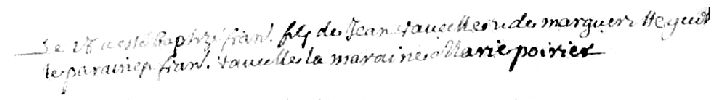 Le 18 a esté baptizé fran. fils de Jean taucelle et de margueritte
le parain fran. taucelle la maraine Marie poirier